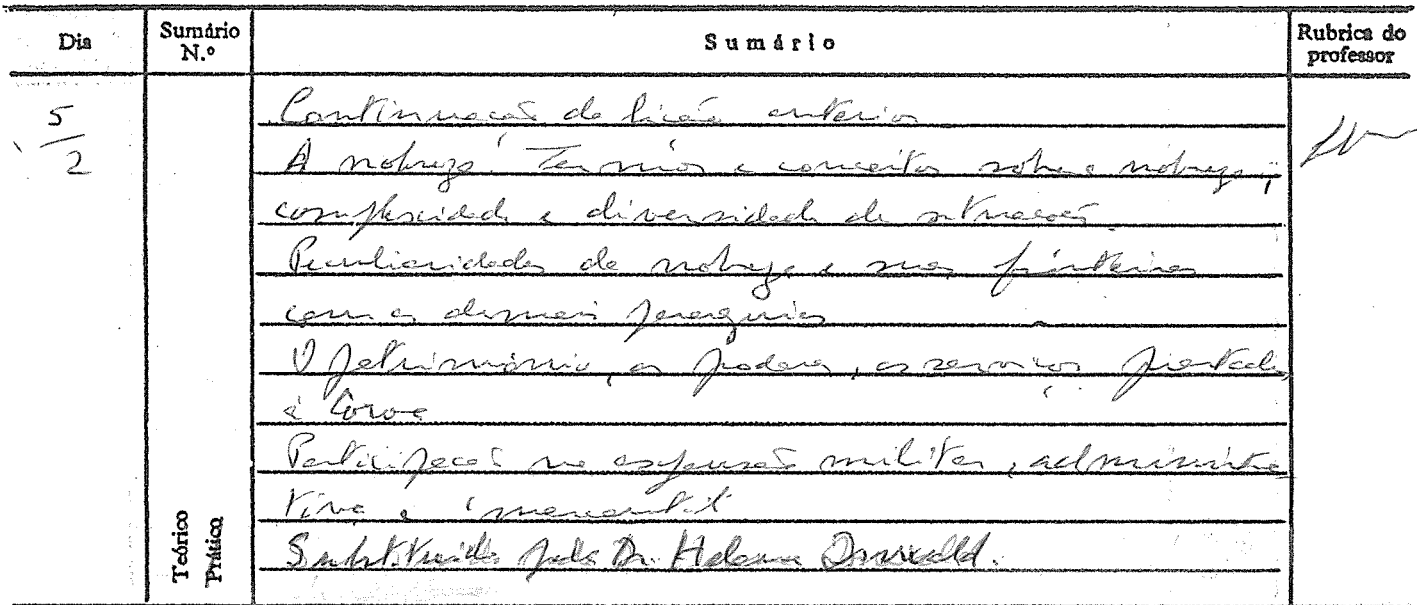 Dia Sumário N.º Sumário Rubrica do professor
5/2
Continuação da lição anterior
A nobreza. Termos e conceitos sobre a nobreza;
complexidade e diversidade de situações
Peculiaridades da nobreza e suas fronteiras
com as demais hierarquias
O património, os poderes, os serviços prestados
à Coroa
Participação na expansão militar, administra-
tiva e mercantil
Substituída pela Dr. Helena Osswald.
Teórico
Prático